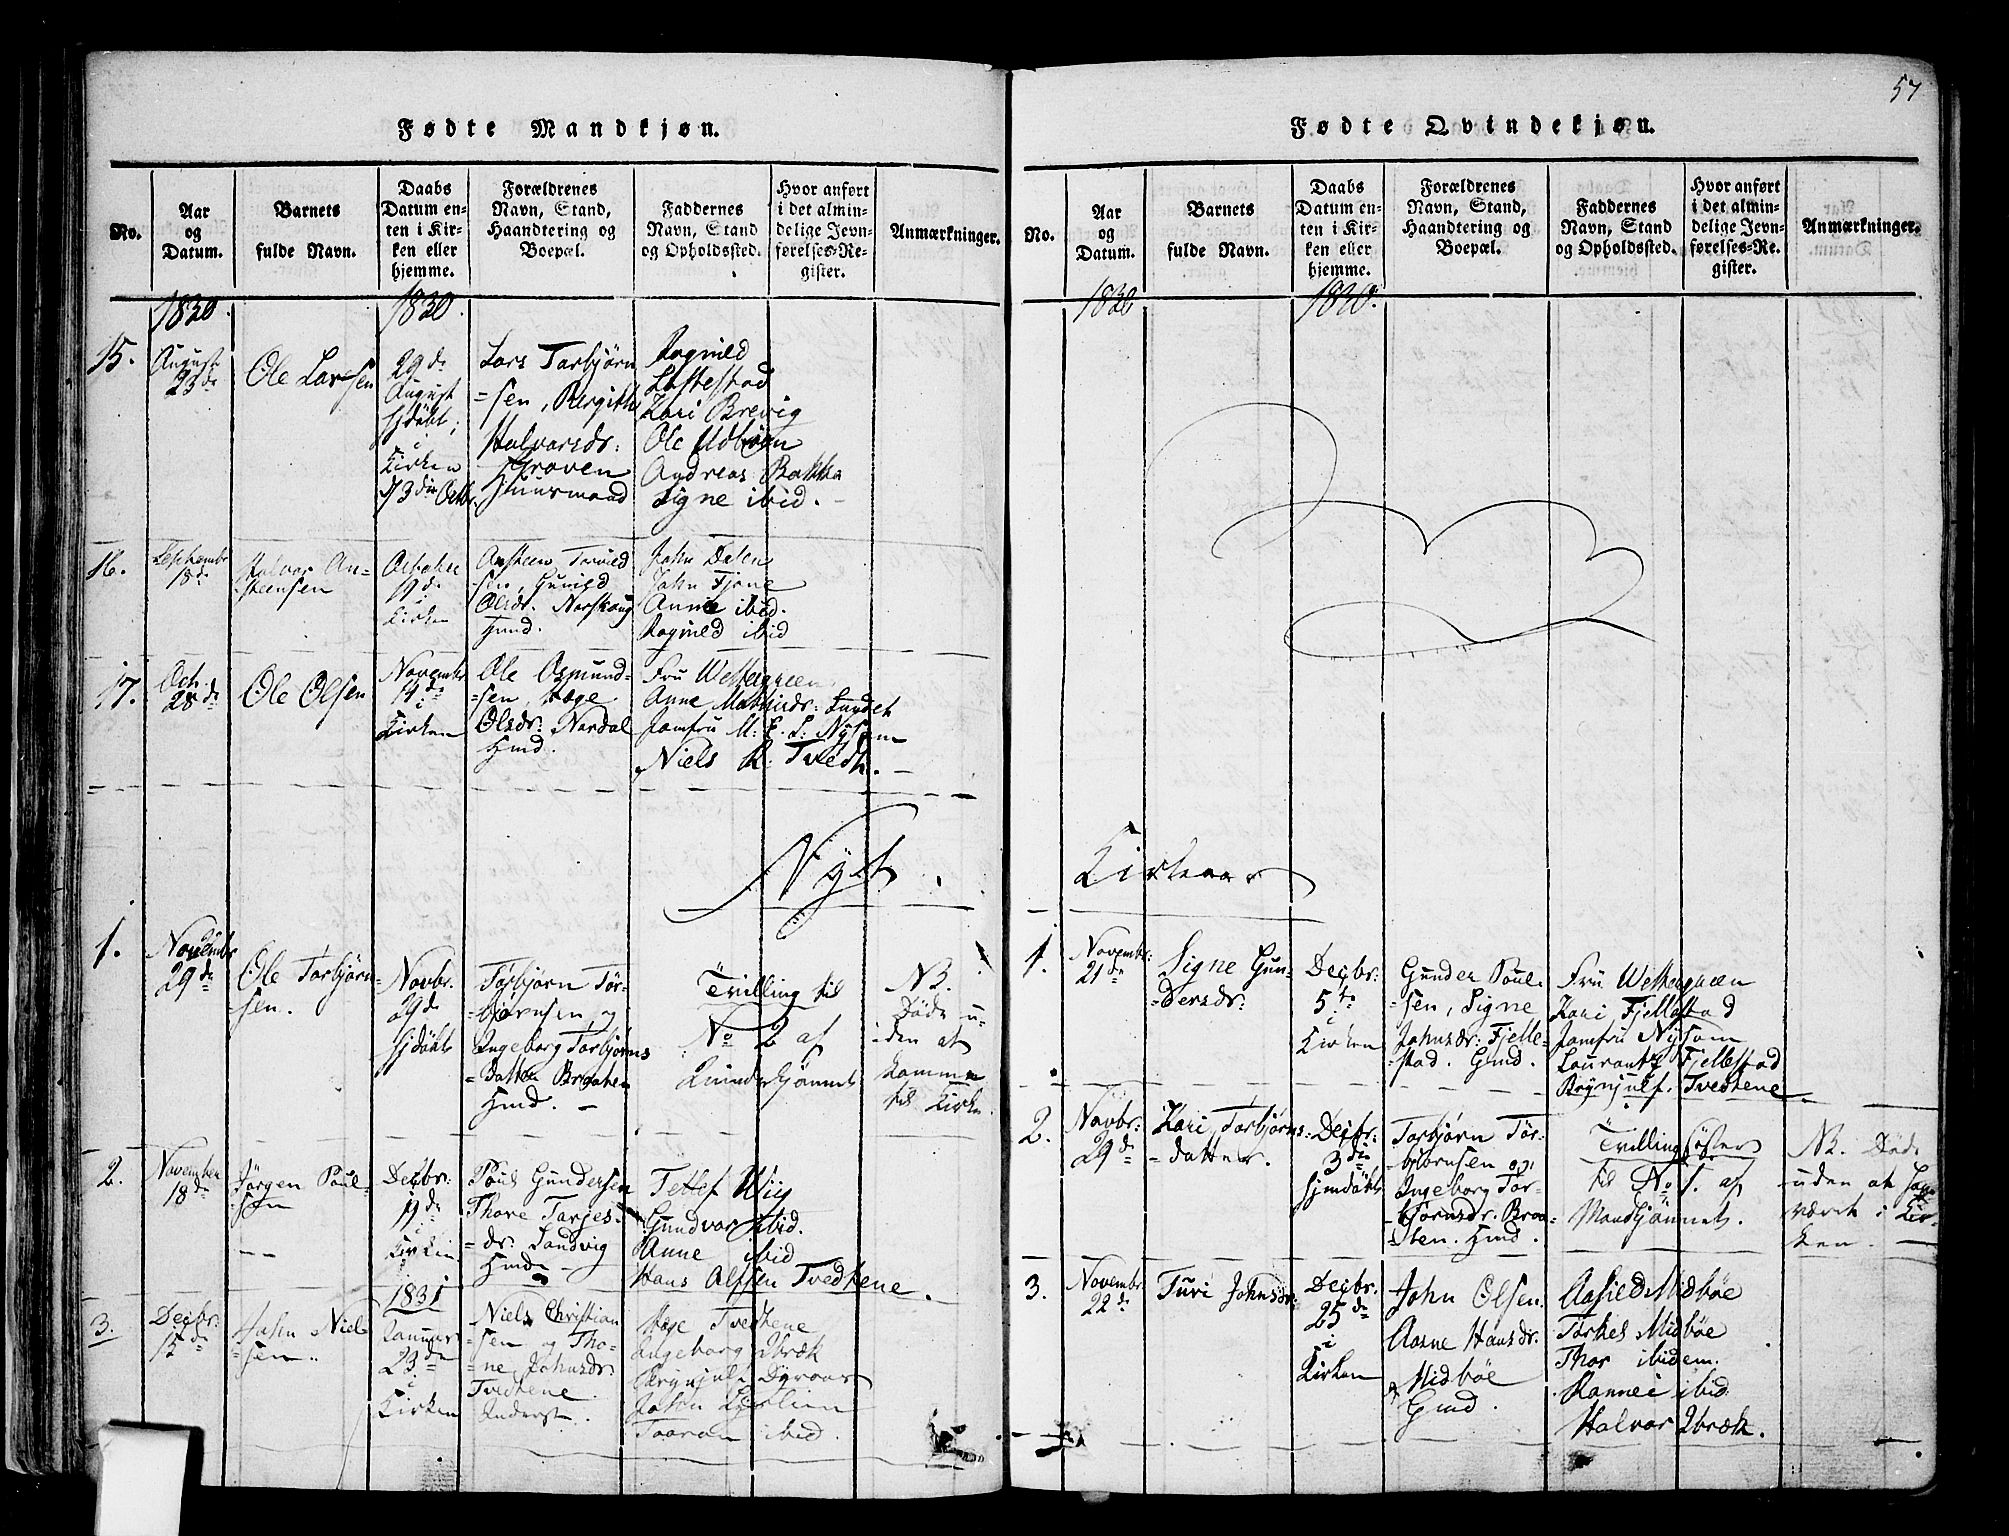 57
Fødte Mandkjøn.
No.
Aar
og
Datum.
Barnets
fulde Navn.
Daabs
Datum en-
ten i Kir-
ken eller
hjemme.
Forældrenes
Navn, Stand,
Haandtering og
Boepæl.
Faddernes
Navn, Stand
og Opholdssted.
Hvor anført
i det almin-
delige Jevn-
førelses-Re-
gister.
Anmærkninger.
1830.
1830.
15.
August
23de
Ole Larsen
29de
August
hjdøbt,
i
Kirken
Octbr.
Lars Torbjørn
=sen, Bergith
Halvorsdr:
Groven
Huusmand
Ragnild
Loftestad
Kari Brevig
Ole Udbøen
Andreas Bakka
Signe ibid.
16.
Septembr
18de
Halvor An=
steensen
October
19de
i
Kirken
Ansteen Torvild
sen, Gunild
Olsdr. Norskoug
Hmd.
John Dalen
John Tjøne
Anne ibid.
Ragnild ibid
17.
Oct.
28de
Ole Olsen
Novembr
14de
i
Kirken
Ole Osmund-
=sen, Hæge
Olsdr: Nordal
Hmd.
Fru Wettergreen
Anne Mathisdr: Lundet
Jomfru M: E. L: Nysom
Niels R: Tvedt.
Nyt.
1.
Novembr
29de
Ole Torbjørn=
sen.
Novbr.
29de
hjdøbt
Torbjørn Tor-
=bjørnsen og
Ingeborg Torbjørns
=Datter Braaten
Hmd.
Tvilling til
No 2 af
Quindekjønnet
NB.
Døde u-
den at
komme
til Kirke.
2.
November
18de
Jørgen Poul-
sen
Decbr:
19de
i
Kirken
Poul Gundersen
Thore Tarjes-
=dr: Sandvig
Hmd.
Tellef Wiig
Gundvor ibid.
Anne ibid
Hans Alfsen Tvedtene.
3.
Decbr.
15de
John Niel
=sen.
1831
Januar
23de
i
Kirken
Niels Christian
=sen og Tho-
=ne Johnsdr.
Tvedtene
Inderst.
Hæge Tvedtene
Ingeborg Ibræk
Brynjulf
John
Taaran ibid.
Fødte Qvindekjøn.
No.
Aar
og
Datum.
Barnets
fulde Navn.
Daabs
Datum en-
ten i Kir-
ken eller
hjemme.
Forældrenes
Navn, Stand,
Haandtering og
Boepæl.
Faddernes
Navn, Stand
og Opholdssted.
Hvor anført
i det almin-
delige Jevn-
førelses-Re-
gister.
Anmærkninger.
1830
1830.
Kirkeaar
1.
Novembr:
21de
Signe Gun-
=dersdr:
Decbr:
5te
i
Kirken
Gunder Poul-
=sen, Signe
Johnsdr: Fjelle-
=stad. Gmd.
Fru Wettergreen
Kari Fjellestad
Jomfru Nysom
Laurantz Fjellestad
Brynjulf. Tvedtene
2.
Novbr:
29de
Kari Torbjørns-
=datter.
Decbr:
3die
hjemdøbt
Torbjørn Tor-
bjørnsen og
Ingeborg Tor-
bjørnsdr. Braa-
=ten. Hmd.
Tvillingsøster
til No 1. af
Mandkjønnet.
NB. Døde
uden at have
været i Kir-
ken.
3.
Novembr
22de
Turi Johnsdr:
Decbr.
25de
i
Kirken
John Olsen.
Aasne Hansdr.
Midbøe
Gmd.
Aasild Midbøe
Torkel Midbøe
Thor ibidem.
Rannei ibid
Halvor Ibræk.